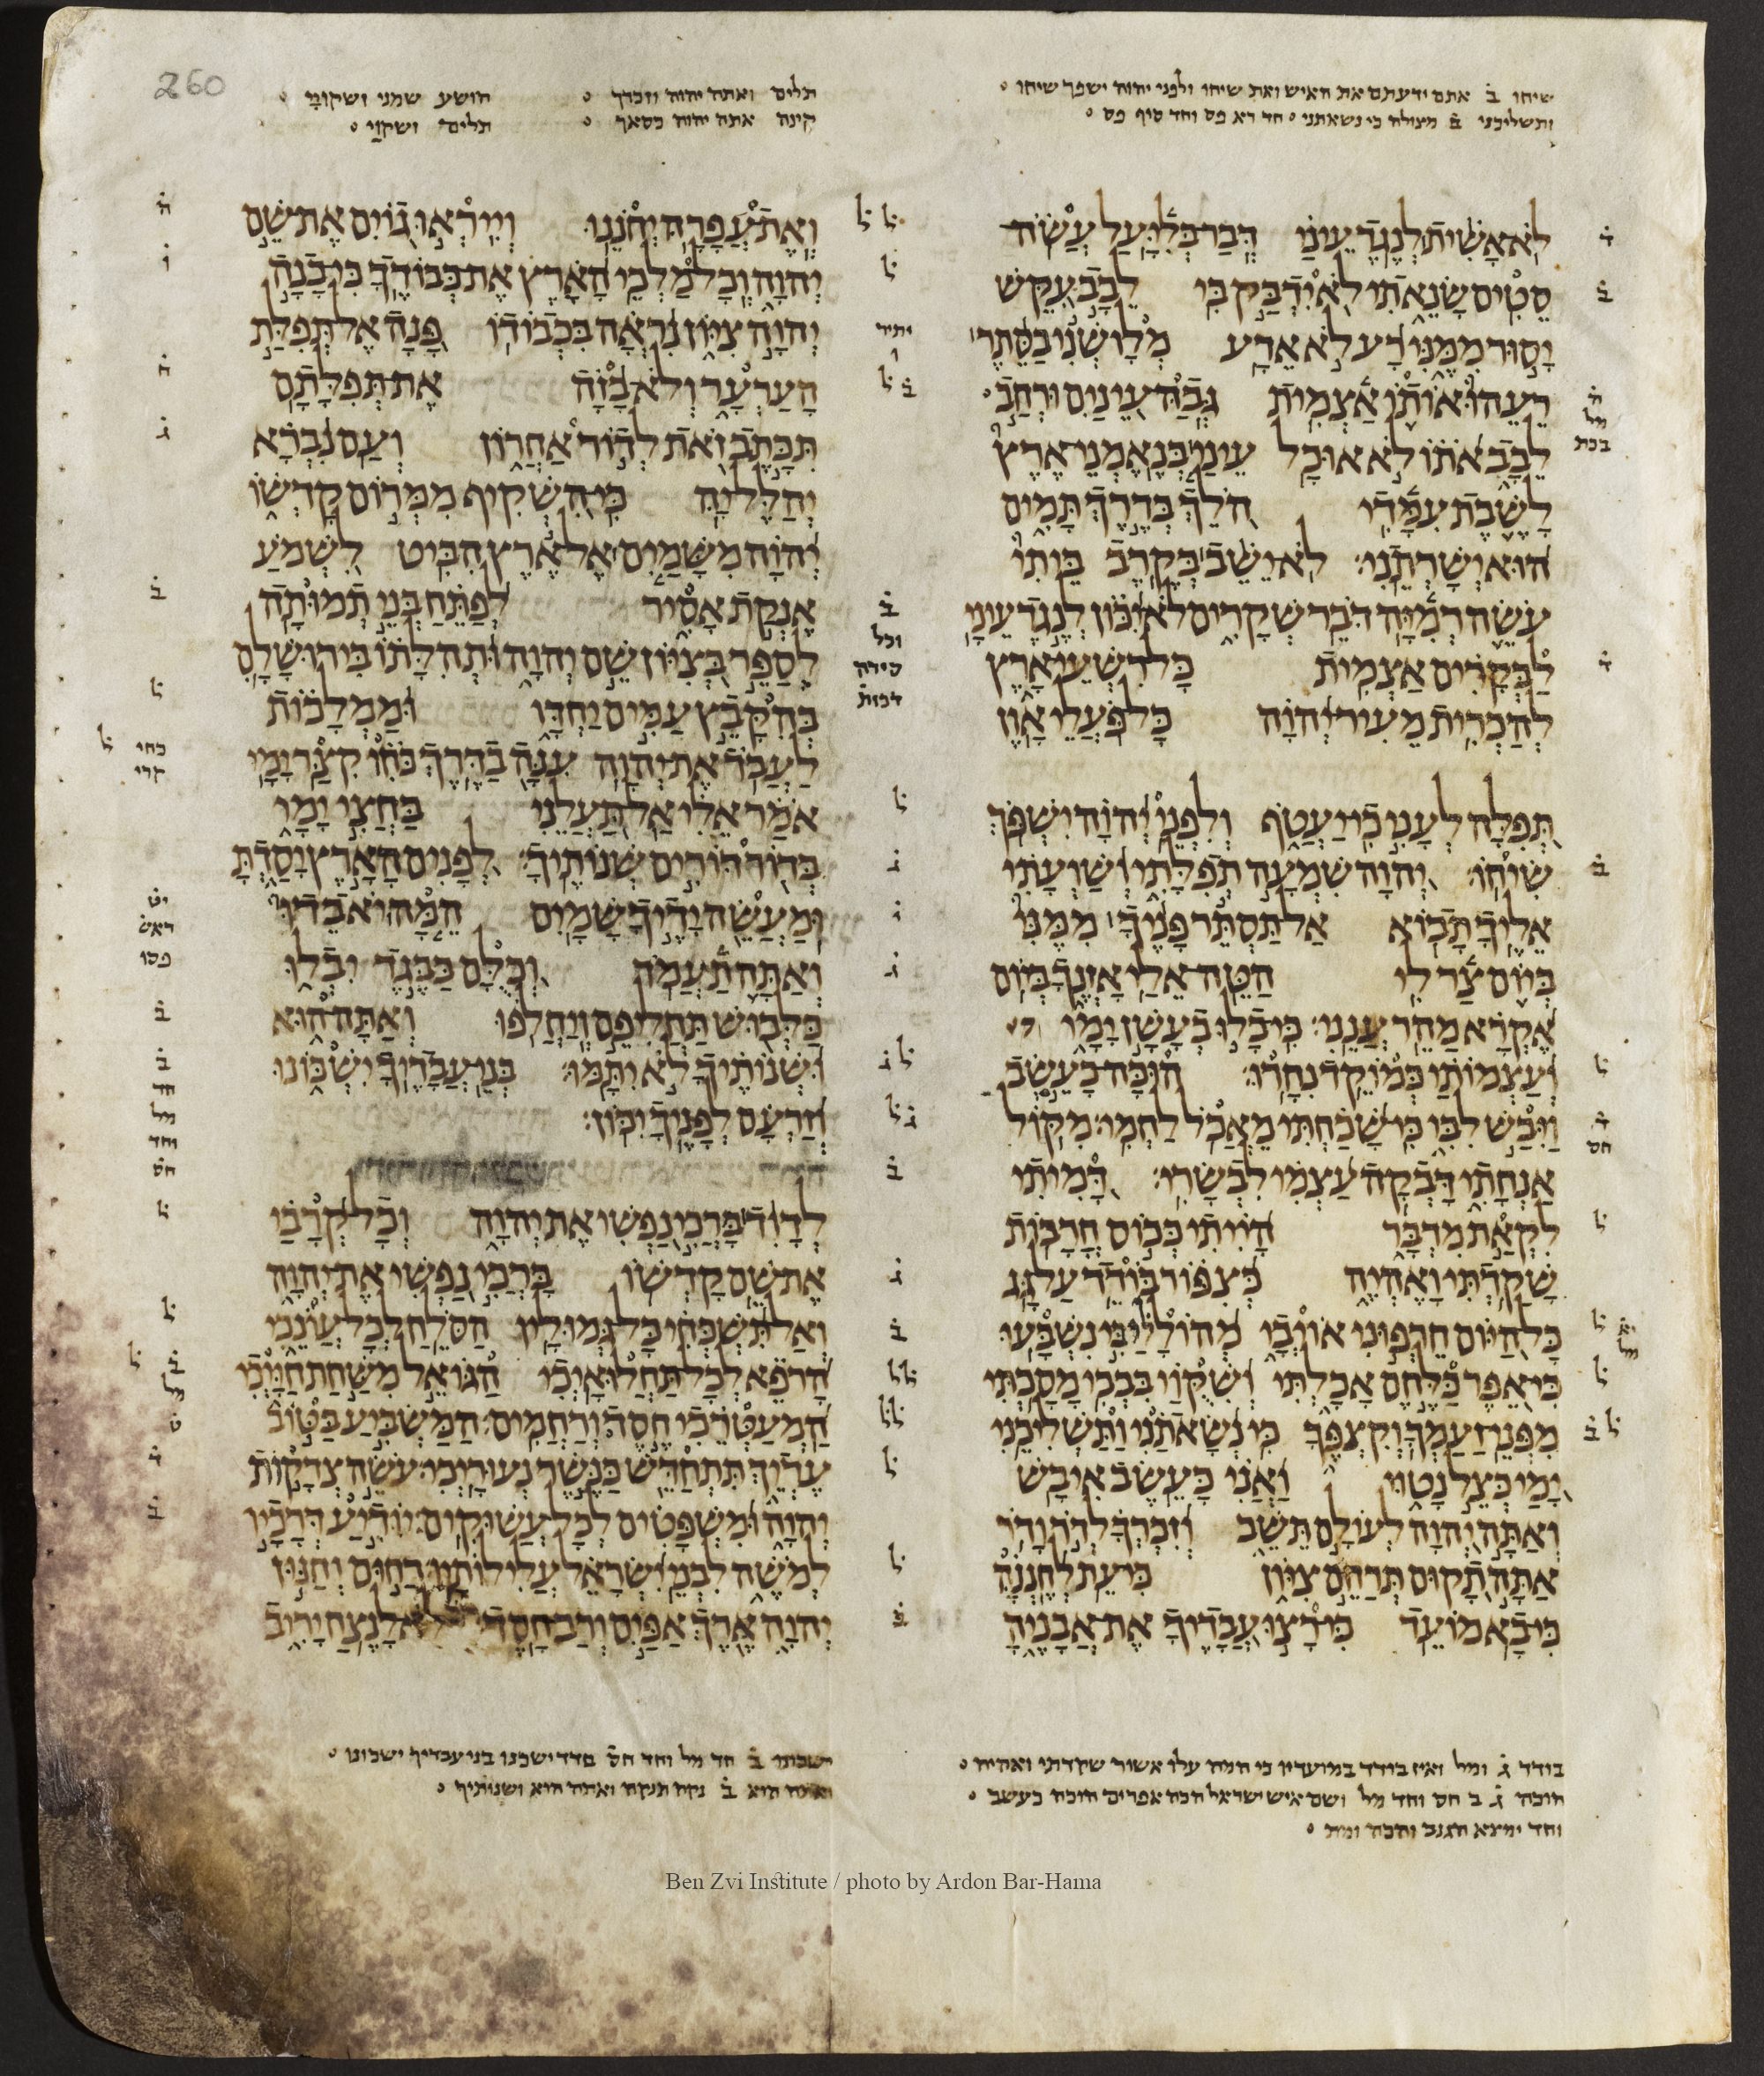 260
שיחו ב אתם ידעתם את האיש ואת שיחו ולפני יהוה ישפך שיחו
ותשליכני ב מצולה כי נשאתני חד רא פס וחד סוף פס
תלים ואתה יהוה וזכרך הושע שמני ושקויי
קינה אתה יהוה כסאך תלים ושקוי
לא אשית לנגד עיני דבר בליעל עשה
סטים שנאתי לא ידבק בי לבב עקש
יסור ממני רע לא אדע מלושני בסתר
רעהו אותו אצמית גבה עינים ורחב
לבב אתו לא אוכל עיני בנאמני ארץ
לשבת עמדי הלך בדרך תמים
הוא ישרתני׃ לא ישב בקרב ביתי
עשה רמיה דבר שקרים לא יכון לנגד עיני
לבקרים אצמית כל רשעי ארץ
להכרית מעיר יהוה כל פעלי און
תפלה לעני כי יעטף ולפני יהוה ישפך
שיחו׃ יהוה שמעה תפלתי ושועתי
אליך תבוא אל תסתר פניך ממני
ביום צר לי הטה אלי אזנך ביום
אקרא מהר ענני׃ כי כלו בעשן ימי
ועצמותי כמוקד נחרו׃ הוכה כעשב
ויבש לבי כי שכחתי מאכל לחמי׃ מקול
אנחתי דבקה עצמי לבשרי׃ דמיתי
לקאת מדבר הייתי ככוס חרבות
שקדתי ואהיה כצפור בודד על גג
כל היום חרפוני אויבי מהוללי בי נשבעו
כי אפר כלחם אכלתי ושקוי בבכי מסכתי
מפני זעמך וקצפך כי נשאתני ותשליכני
ימי כצל נטוי ואני כעשב איבש
ואתה יהוה לעולם תשב וזכרך לדר ודר
אתה תקום תרחם ציון כי עת לחננה
כי בא מועד כי רצו עבדיך את אבניה
ואת עפרה יחננו וייראו גוים את שם
יהוה וכל מלכי הארץ את כבודך כי בנה
יהוה ציון נראה בכבודו פנה אל תפלת
הערער ולא בזה את תפלתם
תכתב זאת לדור אחרון ועם נברא
יהלל יה כי השקיף ממרום קדשו
יהוה משמים אל ארץ הביט לשמע
אנקת אסיר לפתח בני תמותה
לספר בציון שם יהוה ותהלתו בירושלם
בהקבץ עמים יחדו וממלכות
לעבד את יהוה ענה בדרך כחו קצר ימי
אמר אלי אל תעלני בחצי ימי
בדור דורים שנותיך׃ לפנים הארץ יסדת
ומעשה ידיך שמים המה יאבדו
ואתה תעמד וכלם כבגד יבלו
כלבוש תחליפם ויחלפו ואתה הוא
ושנותיך לא יתמו׃ בני עבדיך ישכונו
וזרעם לפניך יכון׃
לדוד ברכי נפשי את יהוה וכל קרבי
את שם קדשו ברכי נפשי את יהוה
ואל תשכחי כל גמוליו הסלח לכל עונכי
הרפא לכל תחלואיכי הגואל משחת חייכי
המעטרכי חסד ורחמים׃ המשביע בטוב
עדיך תתחדש כנשר נעוריכי׃ עשה צדקות
יהוה ומשפטים לכל עשוקים׃ יודיע דרכיו
למשה לבני ישראל עלילותיו׃ רחום וחנון
יהוה ארך אפים ורב חסד לא לנצח יריב
בודד ג ומל ואין בודד במועדיו כי המה עלו אשור שקדתי ואהיה
הוכה ג ב חס וחד מל ושם איש ישראל הכה אפרים הוכה כעשב
וחד ימצא הגנב והכה ומת
ישכונו ב חד מל וחד חס סדד ישכנו בני עבדיך ישכונו
ואתה הוא ב נקה תנקה ואתה הוא ושנותיך
Ben Zvi Institute / photo by Ardon Bar-Hama